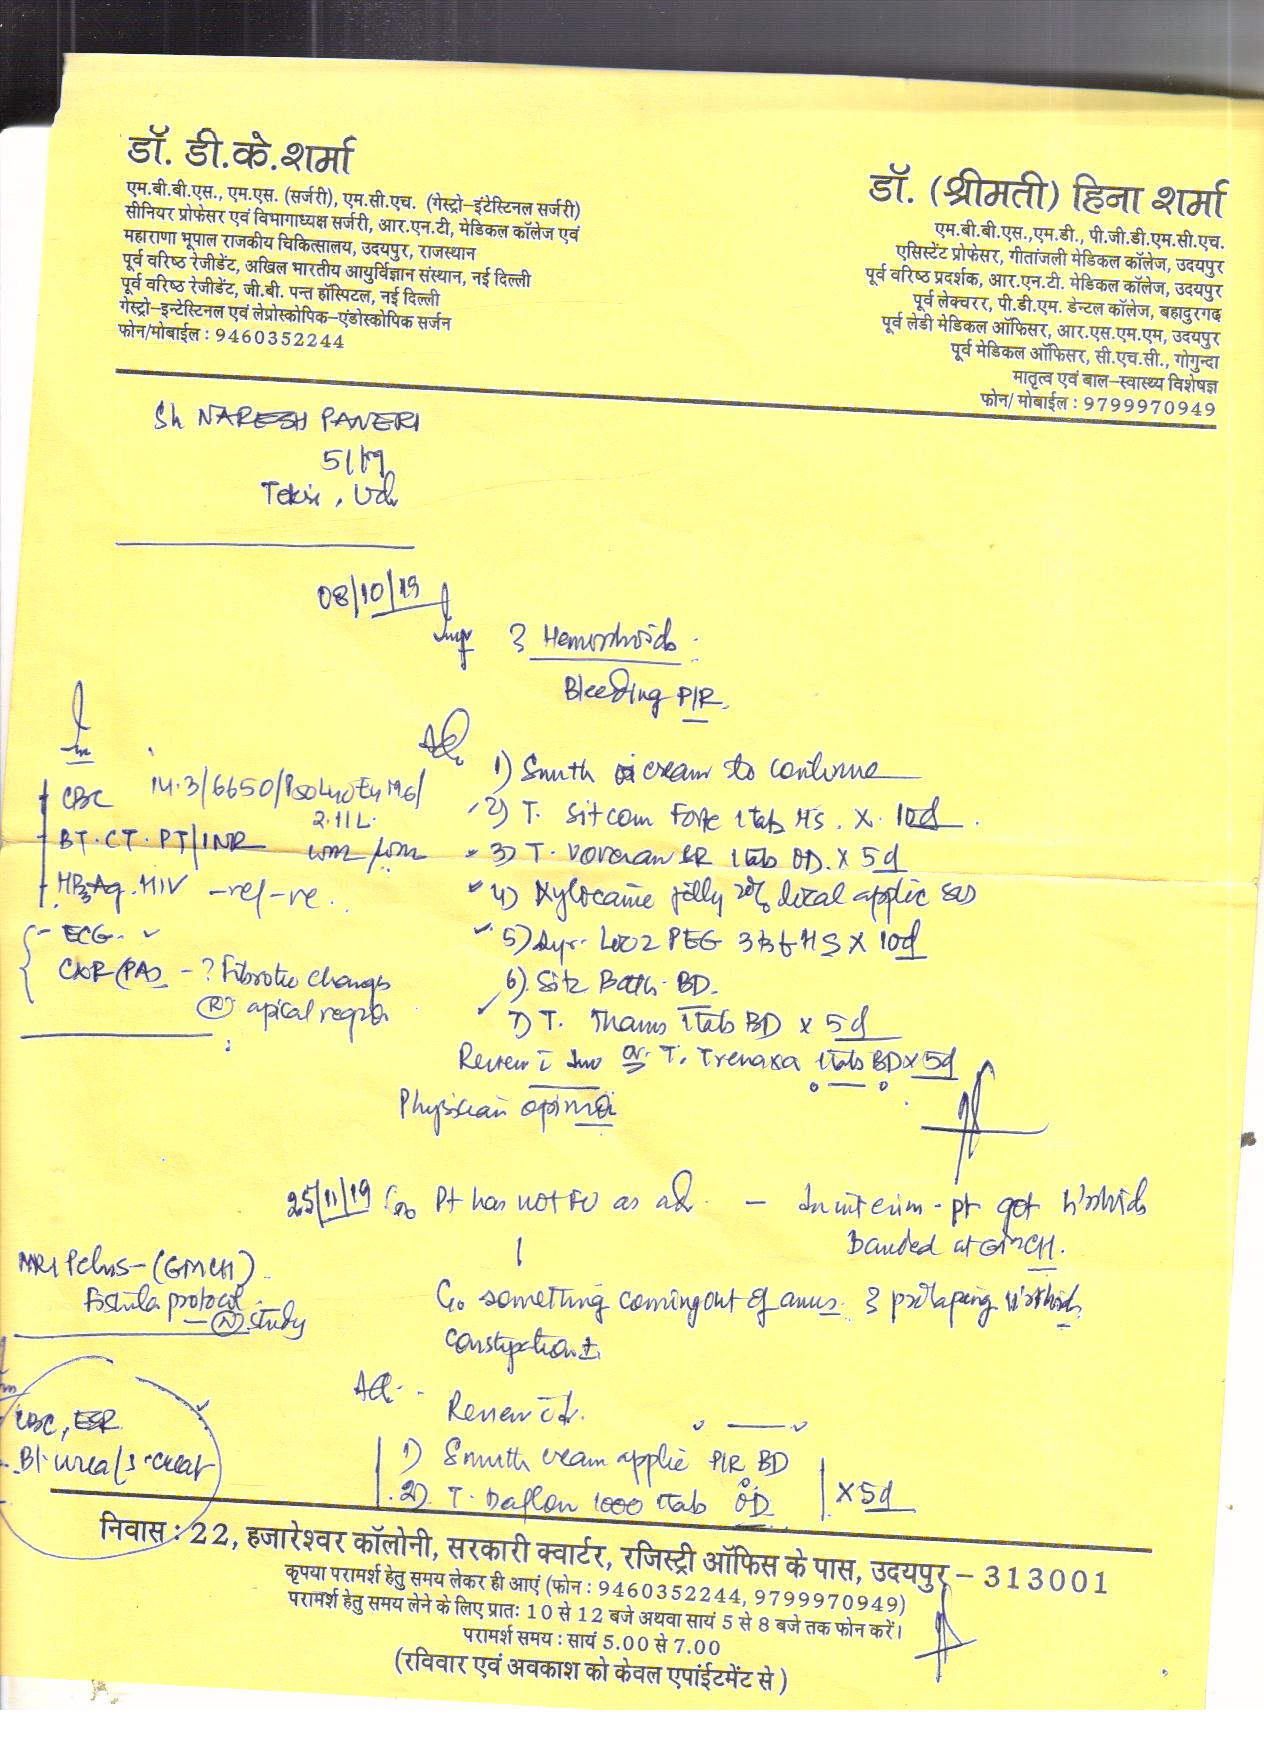 डॉ. डी.के.शर्मा
एम.बी.बी.एस., एम.एस. (सर्जरी), एम.सी.एच. (गेस्ट्रो–इंटेस्टिनल सर्जरी)
सीनियर प्रोफेसर एवं विभागाध्यक्ष सर्जरी, आर.एन.टी. मेडिकल कॉलेज एवं
महाराणा भूपाल राजकीय चिकित्सालय, उदयपुर, राजस्थान
पूर्व वरिष्ठ रेजीडेंट, अखिल भारतीय आयुर्विज्ञान संस्थान, नई दिल्ली
पूर्व वरिष्ठ रेजीडेंट, जी.बी. पन्त हॉस्पिटल, नई दिल्ली
गेस्ट्रो–इन्टेस्टिनल एवं लेप्रोस्कोपिक–एंडोस्कोपिक सर्जन
फोन/मोबाईल : 9460352244
डॉ. (श्रीमती) हिना शर्मा
एम.बी.बी.एस.,एम.डी., पी.जी.डी.एम.सी.एच.
एसिस्टेंट प्रोफेसर, गीतांजली मेडिकल कॉलेज, उदयपुर
पूर्व वरिष्ठ प्रदर्शक, आर.एन.टी. मेडिकल कॉलेज, उदयपुर
पूर्व लेक्चरर, पी.डी.एम. डेन्टल कॉलेज, बहादुरगढ़
पूर्व लेडी मेडिकल ऑफिसर, आर.एस.एम.एम, उदयपुर
पूर्व मेडिकल ऑफिसर, सी.एच.सी., गोगुन्दा
मातृत्व एवं बाल–स्वास्थ्य विशेषज्ञ
फोन/ मोबाईल : 9799970949
Sh NARESH PANERI
08/10/19
Hemorrhoids
Bleeding P/R
Adv
1) Smuth cream to continue
2) T. Sitcom Forte 1 tab HS. X 10d
3) T. Voveran SR 1 tab OD. X 5d
4) Xylocaine jelly 2% local applic
5) Syr. Looz PEG HS X 10d
6) Sitz Bath BD
7) T. 1 tab BD x 5d
or T. Trenaxa 1 tab BD x 5d
Review
Physician opinion
CBC 14.3/6650/
2.11 L.
BT. CT. PT/INR
HBsAg. HIV
ECG
CXR (PA) - ? Fibrotic changes
(R) apical region
25/11/19 Pt has not FU as adv. – In interim pt got
Banded at GMCH.
C/o something coming out of anus. prolapsing
constipation ±
MRI Pelvis - (GMCH)
Fistula protocol
- (N) study
Adv
Review
1) Smuth cream applic P/R BD
2) T. Daflon 1000 1 tab OD
x 5d
CBC, ESR
Bl. urea/S. creat
निवास : 22, हजारेश्वर कॉलोनी, सरकारी क्वार्टर, रजिस्ट्री ऑफिस के पास, उदयपुर – 313001
कृपया परामर्श हेतु समय लेकर ही आएं (फोन : 9460352244, 9799970949)
परामर्श हेतु समय लेने के लिए प्रातः 10 से 12 बजे अथवा सायं 5 से 8 बजे तक फोन करें।
परामर्श समय : सायं 5.00 से 7.00
(रविवार एवं अवकाश को केवल एपांईटमेंट से )